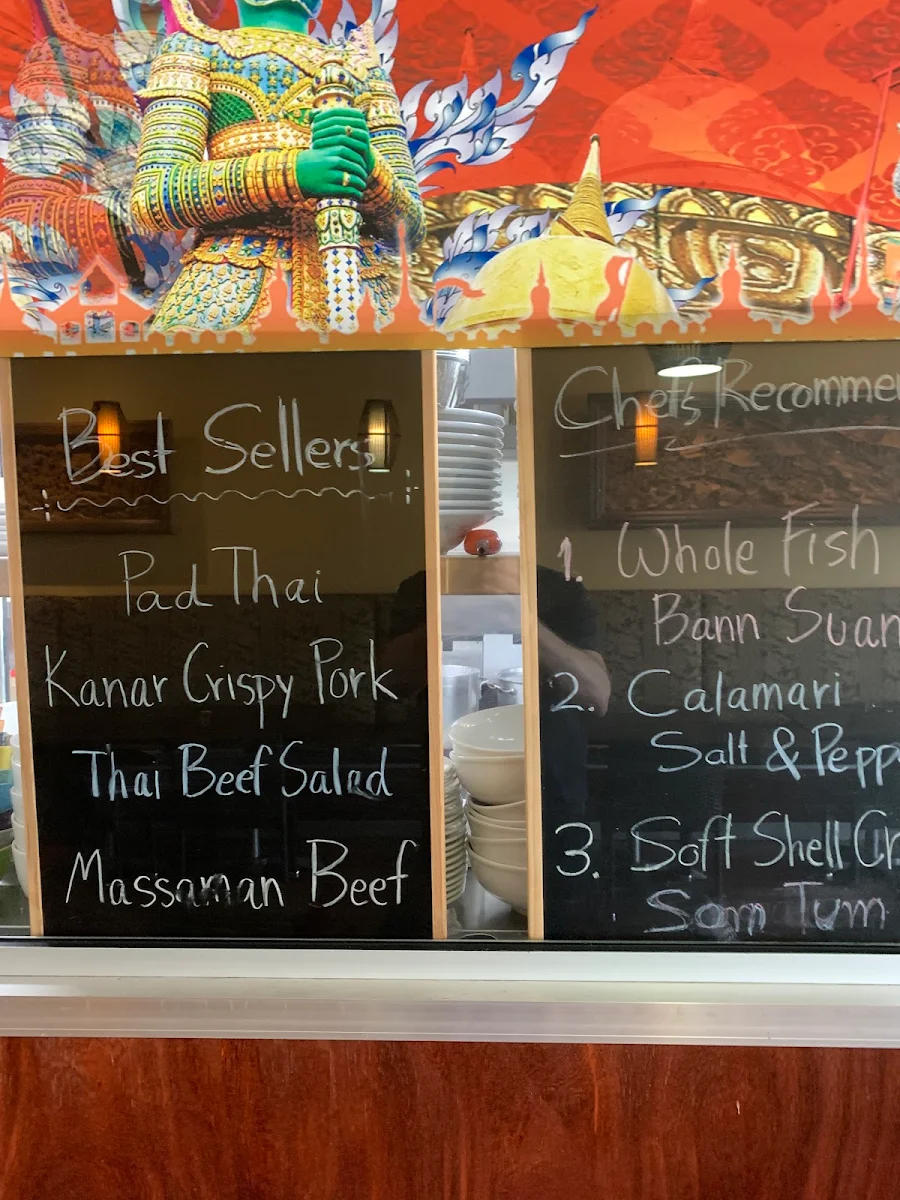 Best Sellers
Pad Thai
Kanar Crispy Pork
Thai Beef Salad
Massaman Beef
Chef's Recommen
1. Whole Fish
Bann Suan
2. Calamari
Salt & Pepp
3. Soft Shell Cr
Som Tum